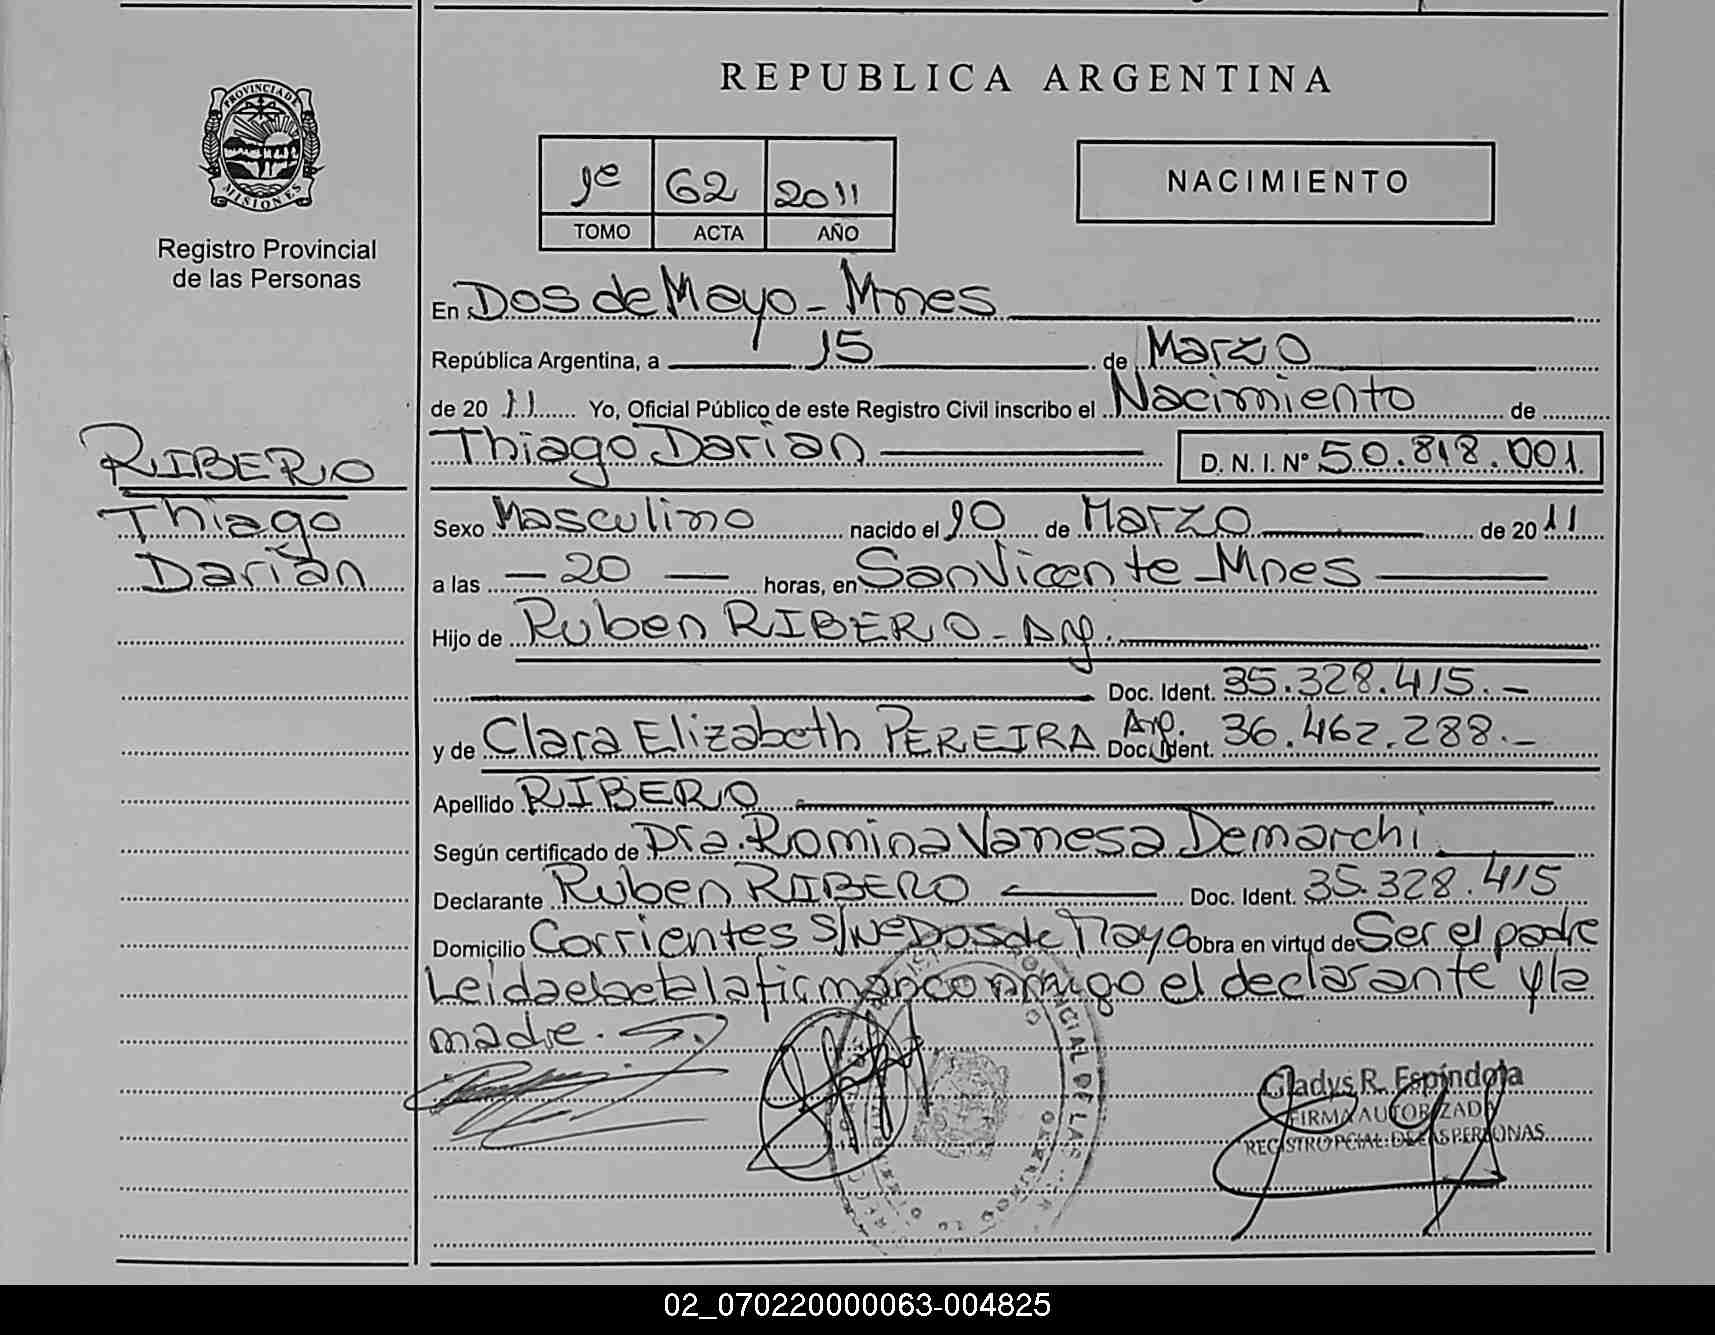 REPUBLICA ARGENTINA
PROVINCIA DE
MISIONES
Registro Provincial
de las Personas
1º 62 2011
TOMO ACTA AÑO
NACIMIENTO
En Dos de Mayo - Mnes
República Argentina, a 15 de Marzo
de 20 11 Yo, Oficial Público de este Registro Civil inscribo el Nacimiento de
Thiago Darian D. N. I. Nº 50.818.001
RIBERO
Thiago
Darian
Sexo Masculino nacido el 10 de Marzo de 20 11
a las - 20 - horas, en San Vicente - Mnes
Hijo de Ruben RIBERO - Arg.
Doc. Ident. 35.328.415.-
y de Clara Elizabeth PEREIRA Arg. Doc. Ident. 36.462.288.-
Apellido RIBERO
Según certificado de Dra. Romina Vanesa Demarchi
Declarante Ruben RIBERO Doc. Ident. 35.328.415
Domicilio Corrientes S/Nº Dos de Mayo Obra en virtud de Ser el padre
Leida el acta la firman conmigo el declarante y la
madre.
Gladys R. Espíndola
FIRMA AUTORIZADA
REGISTRO PCIAL. DE LAS PERSONAS
02_070220000063-004825